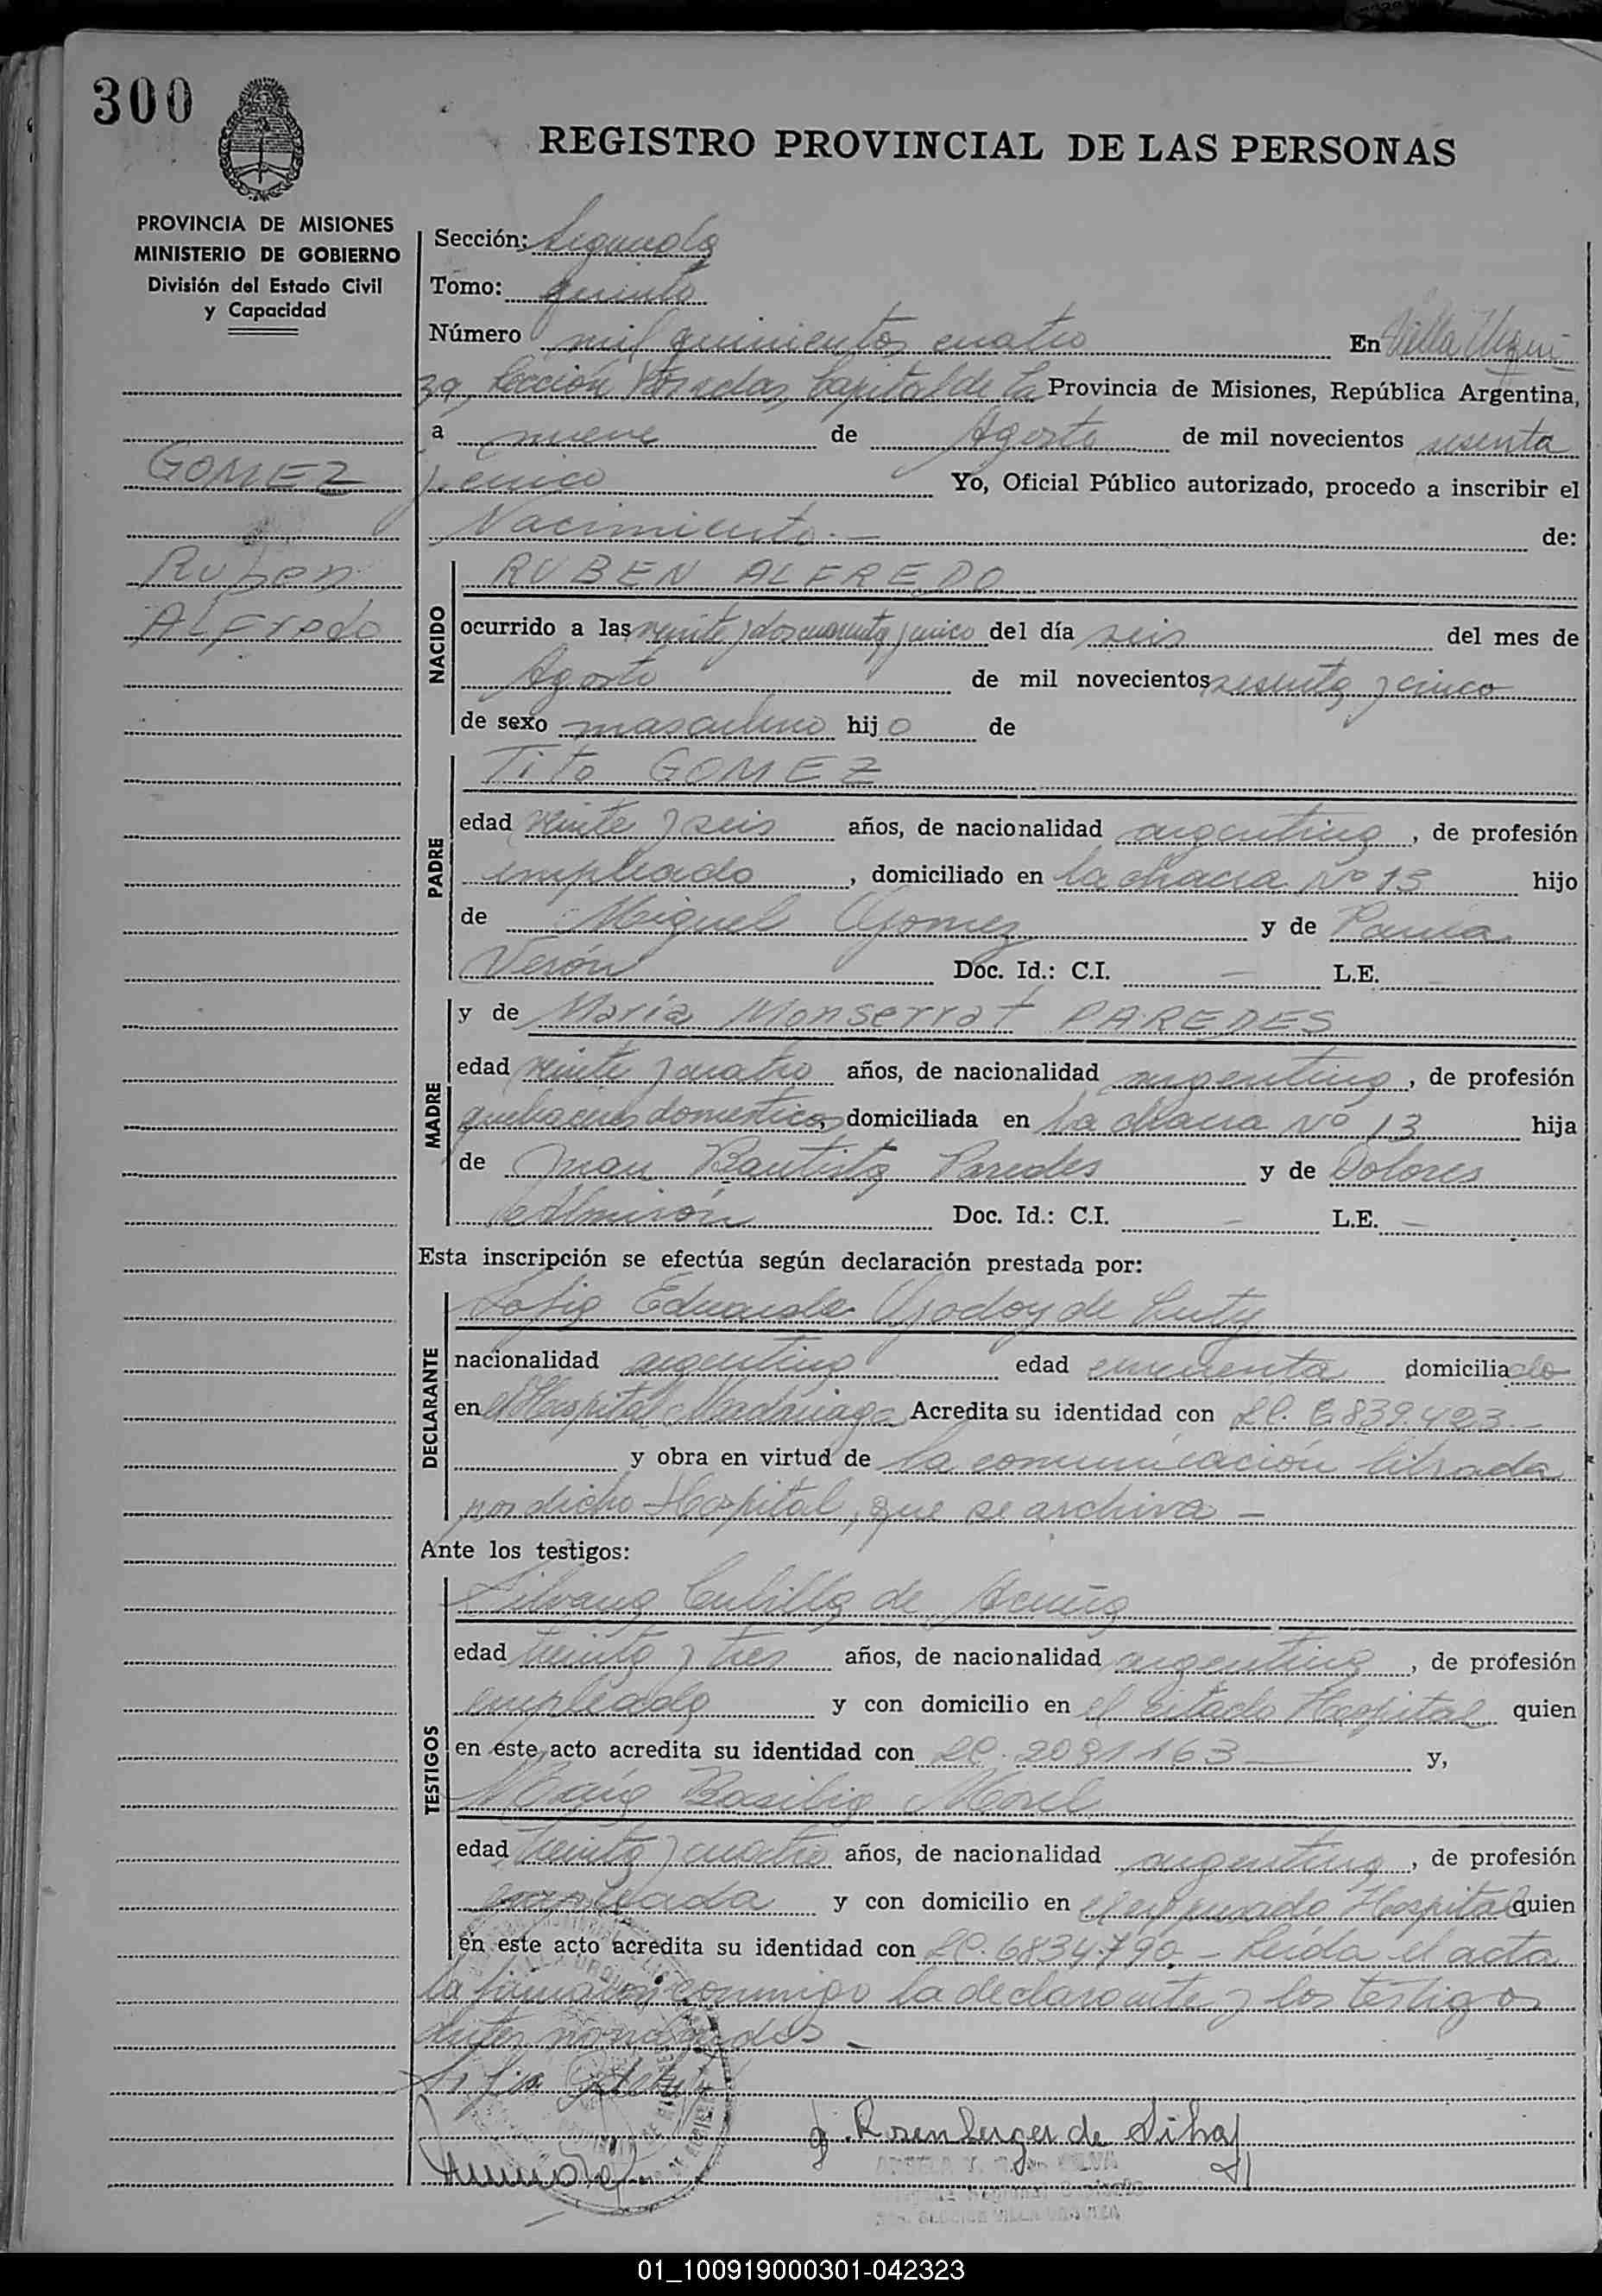 300
REGISTRO PROVINCIAL DE LAS PERSONAS
PROVINCIA DE MISIONES
MINISTERIO DE GOBIERNO
División del Estado Civil
y Capacidad
GOMEZ
Ruben
Alfredo
Sección: Segunda
Tomo: quinto
Número mil quinientos cuatro En Villa Urqui
za, Sección Posadas, Capital de la Provincia de Misiones, República Argentina,
a nueve de Agosto de mil novecientos sesenta
y cinco Yo, Oficial Público autorizado, procedo a inscribir el
Nacimiento.— de:
NACIDO
RUBEN ALFREDO
ocurrido a las veinte y dos cuarenta y cinco del día seis del mes de
Agosto de mil novecientos sesenta y cinco
de sexo masculino hijo de
PADRE
Tito GOMEZ
edad veinte y seis años, de nacionalidad argentina, de profesión
empleado, domiciliado en la chacra Nº 13 hijo
de Miguel Gomez y de
Verón Doc. Id.: C.I. — L.E.
MADRE
y de María Monserrat PAREDES
edad veinte y cuatro años, de nacionalidad argentina, de profesión
quehaceres domesticos, domiciliada en la chacra Nº 13 hija
de Juan Bautista Paredes y de Dolores
Almirón Doc. Id.: C.I. — L.E. —
Esta inscripción se efectúa según declaración prestada por:
DECLARANTE
Sofia Eduarda Godoy de
nacionalidad argentina edad cincuenta domiciliado
en el Hospital Madariaga Acredita su identidad con LC. 6.839.423.—
y obra en virtud de la comunicación librada
por dicho Hospital, que se archiva —
Ante los testigos:
TESTIGOS
Silvana Cubilla de Acuña
edad treinta y tres años, de nacionalidad argentina, de profesión
empleada y con domicilio en el citado Hospital quien
en este acto acredita su identidad con LC. 2091163 — y,
María Basilia Morel
edad treinta y cuatro años, de nacionalidad argentina, de profesión
empleada y con domicilio en el expresado Hospital quien
en este acto acredita su identidad con LC. 6834.790.— Leída el acta
la firmaron conmigo la declarante y los testigos
antes nombrados —
Sofia
Rosenberger de Silva
01_100919000301-042323